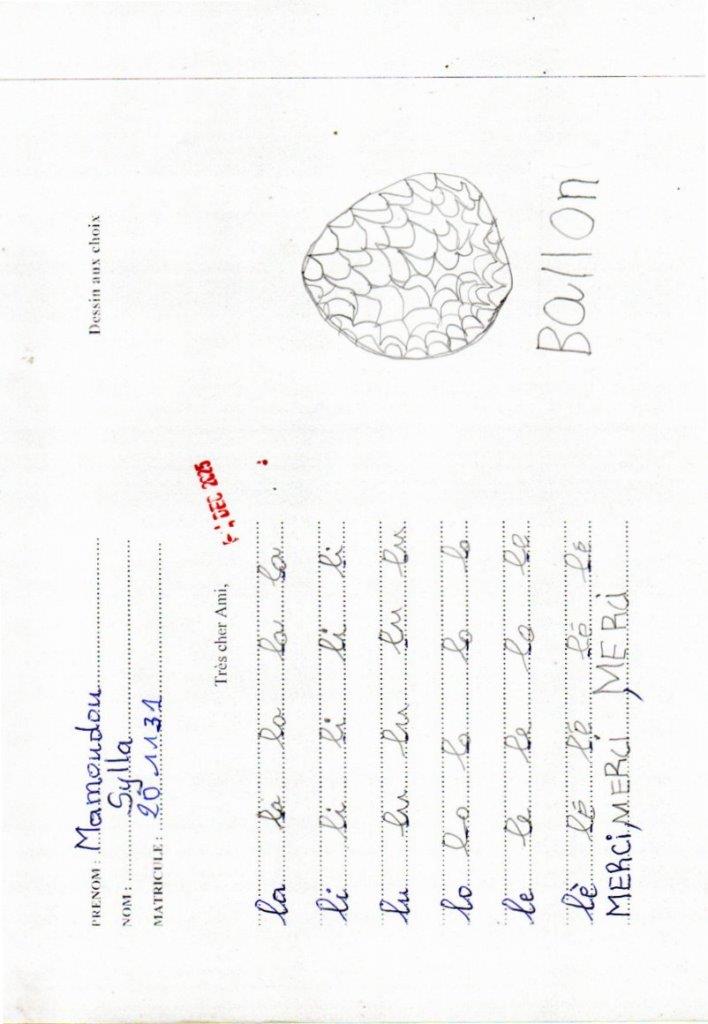 PRENOM : Mamoudou
NOM : Sylla
MATRICULE : 201131
Très cher Ami,
DEC 2025
la la la la la
li li li li li
lu lu lu lu lu
lo lo lo lo lo
le le le le le
lè lé lé lé lé
MERCi, MERCI, MERCi
Dessin aux choix
Ballon